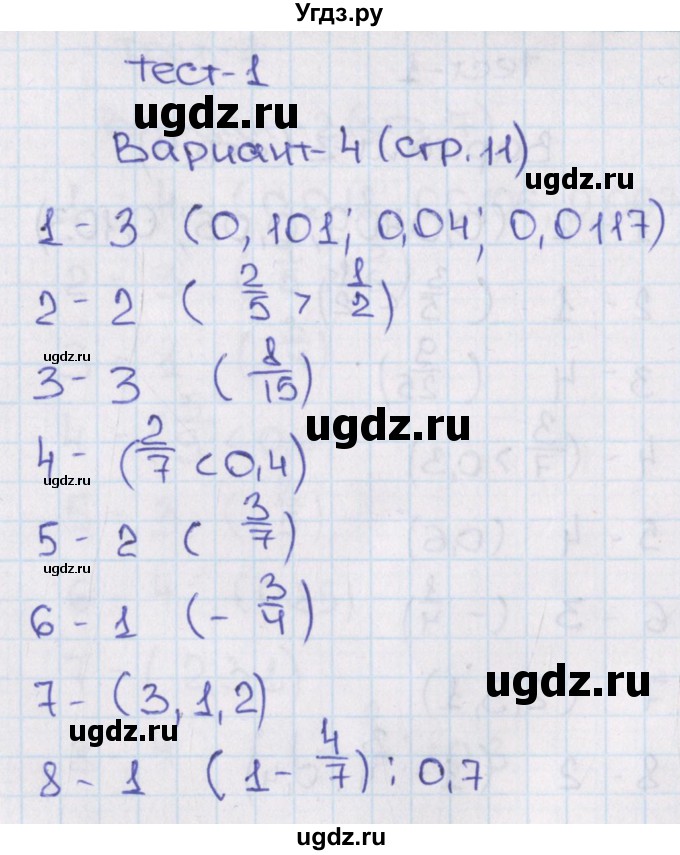 Угдз.ру
Тест-1
ugdz.ru
Вариант-4 (стр.11)
ugdz.ru
1 - 3 (0,101; 0,04; 0,0117)
2 - 2 ( 2/5 > 1/2 )
ugdz.ru
3 - 3 ( 8/15 )
ugdz.ru
4 - ( 2/7 < 0,4 )
ugdz.ru
5 - 2 ( 3/7 )
ugdz.ru
6 - 1 ( - 3/4 )
ugdz.ru
7 - (3, 1, 2)
ugdz.ru
8 - 1 ( 1 - 4/7 ) : 0,7
ugdz.ru